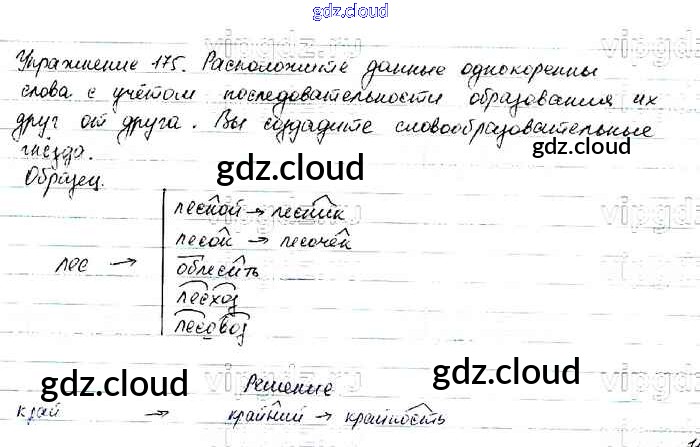 gdz.cloud
Упражнение 175. Расположите данные однокоренны
слова с учётом последовательности образования их
друг от друга. Вы создадите словообразовательные
гнёзда.
gdz.cloud
gdz.cloud
Образец.
лесной → лесник
лесок → лесочек
лес →
облесить
лесхоз
лесовоз
gdz.cloud
gdz.cloud
Решение
край → крайний → крайность